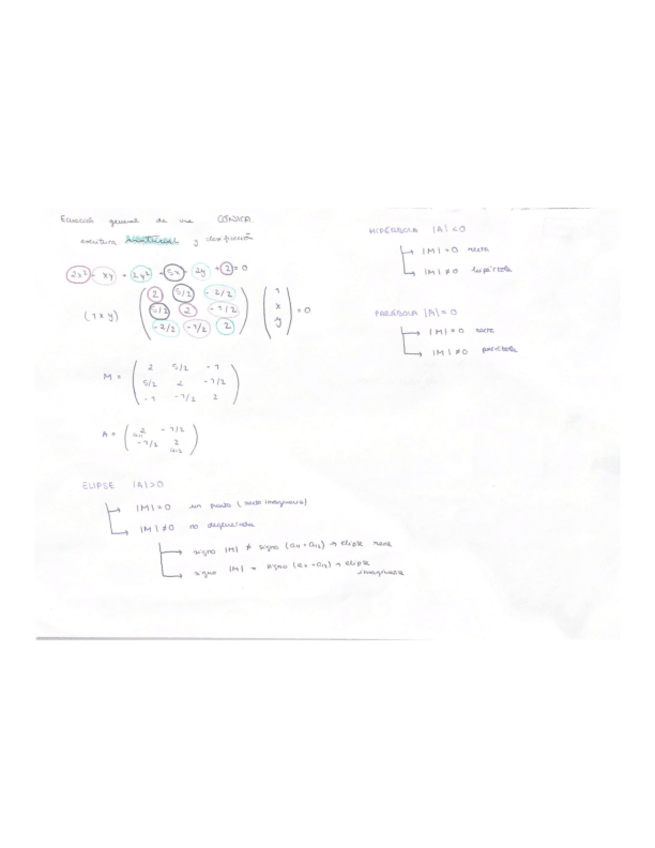 Ecuación general de una CÓNICA
escritura matricial y clasificación
2x² - xy + 2y² + 5x - 2y + 2 = 0
(1 x y) ( 2 5/2 -2/2 ) ( 1 )
( 5/2 2 -1/2 ) ( x ) = 0
( -2/2 -1/2 2 ) ( y )
M = ( 2 5/2 -1 )
( 5/2 2 -1/2 )
( -1 -1/2 2 )
A = ( 2 -1/2 )
a₁₁
( -1/2 2 )
a₁₂
ELIPSE |A|>0
|M| = 0 un punto (recta imaginaria)
|M| ≠ 0 no degenerada
signo |M| ≠ signo (a₁₁ + a₁₂) → elipse real
signo |M| = signo (a₁₁ + a₁₂) → elipse
imaginaria
HIPÉRBOLA |A| < 0
|M| = 0 recta
|M| ≠ 0 hipérbola
PARÁBOLA |A| = 0
|M| = 0 recta
|M| ≠ 0 parábola